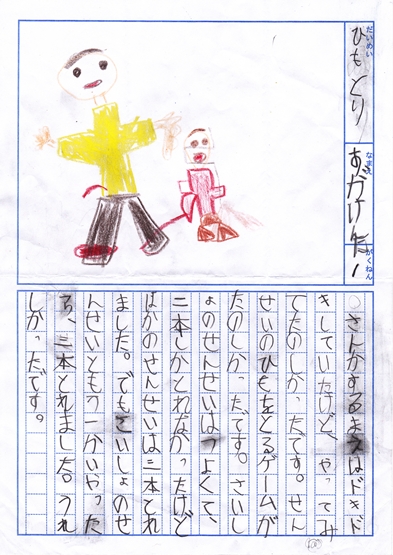 だいめい
ひもとり
なまえ
がくねん
1
さんかするまえはドキド
キしていたけど、やってみ
てたのしかったです。せん
せいのひもをとるゲームが
たのしかったです。さいし
ょのせんせいはつよくて、
二本しかとれなかったけど
ほかのせんせいは三本とれ
ました。でもさいしょのせ
んせいともう一かいやった
ら、三本とれました。うれ
しかったです。